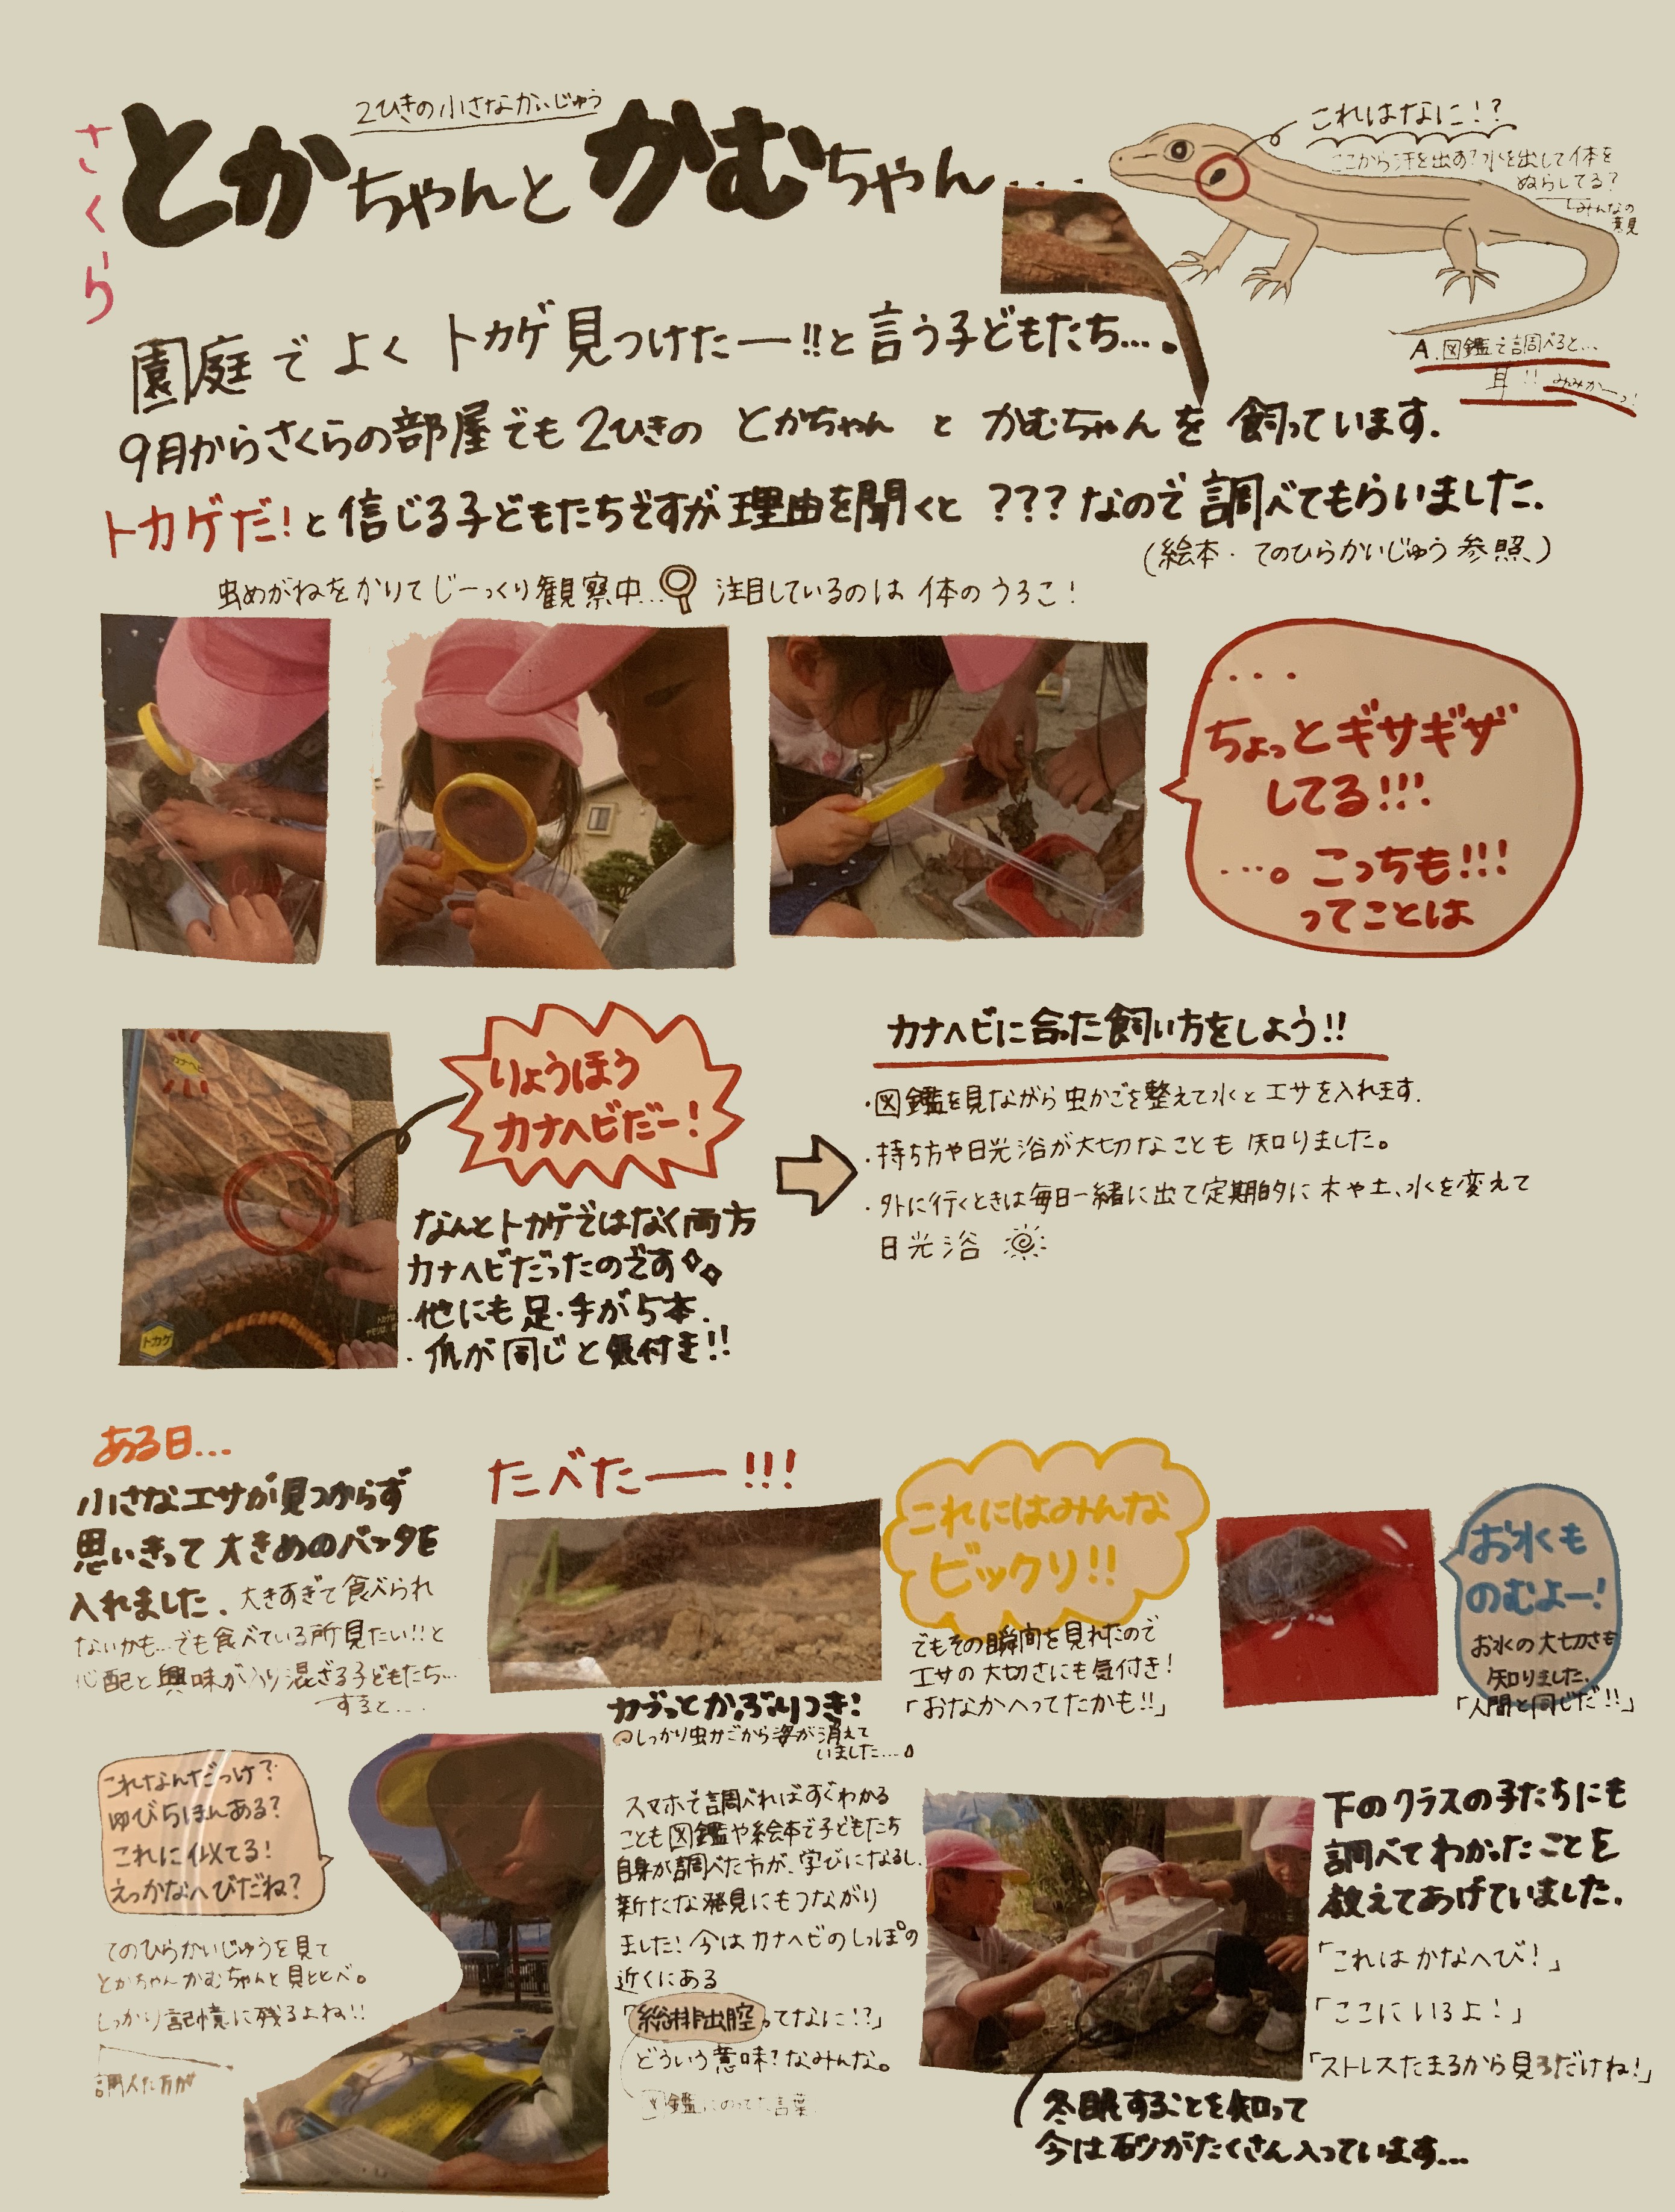 さくら
2ひきの小さなかいじゅう
とかちゃんとかむちゃん...
これはなに!?
ここから汗を出す?水を出して体を
ぬらしてる?
みんなの
意見
A.図鑑で調べると...
耳!! みみかーっ!
園庭でよくトカゲ見つけたー!!と言う子どもたち...。
9月からさくらの部屋でも2ひきのとかちゃんとかむちゃんを飼っています.
トカゲだ!と信じる子どもたちですが理由を聞くと???なので調べてもらいました.
(絵本・てのひらかいじゅう参照)
虫めがねをかりてじーっくり観察中... 注目しているのは体のうろこ!
....
ちょっとギサギザ
してる!!!
...。こっちも!!!
ってことは
カナヘビ
トカゲ
りょうほう
カナヘビだー!
なんとトカゲではなく両方
カナヘビだったのです
・他にも足・手が5本.
・爪が同じと気付き!!
カナヘビに合った飼い方をしよう!!
・図鑑を見ながら虫かごを整えて水とエサを入れます.
・持ち方や日光浴が大切なことも知りました。
・外に行くときは毎日一緒に出て定期的に木や土、水を変えて
日光浴
ある日...
小さなエサが見つからず
思いきって大きめのバッタを
入れました.大きすぎて食べられ
ないかも...でも食べている所見たい!!と
心配と興味が入り混ざる子どもたち...
すると...
たべたー!!!
ガブっとかぶりつき!
しっかり虫かごから姿が消えて
いました...。
これにはみんな
ビックリ!!
でもその瞬間を見れたので
エサの大切さにも気付き!
「おなかへってたかも!!」
お水も
のむよー!
お水の大切さも
知りました.
「人間と同じだ!!」
これなんだっけ?
ゆび5ほんある?
これに似てる!
えっかなへびだね?
てのひらかいじゅうを見て
とかちゃんかむちゃんと見比べ。
しっかり記憶に残るよね!!
調べた方が
スマホで調べればすぐわかる
ことも図鑑や絵本で子どもたち
自身が調べた方が、学びになるし、
新たな発見にもつながり
ました!今はカナヘビのしっぽの
近くにある
「総排出腔ってなに!?」
どういう意味?なみんな。
図鑑にのってた言葉
下のクラスの子たちにも
調べてわかったことを
教えてあげていました.
「これはかなへび!」
「ここにいるよ!」
「ストレスたまるから見るだけね!」
冬眠することを知って
今は砂がたくさん入っています...